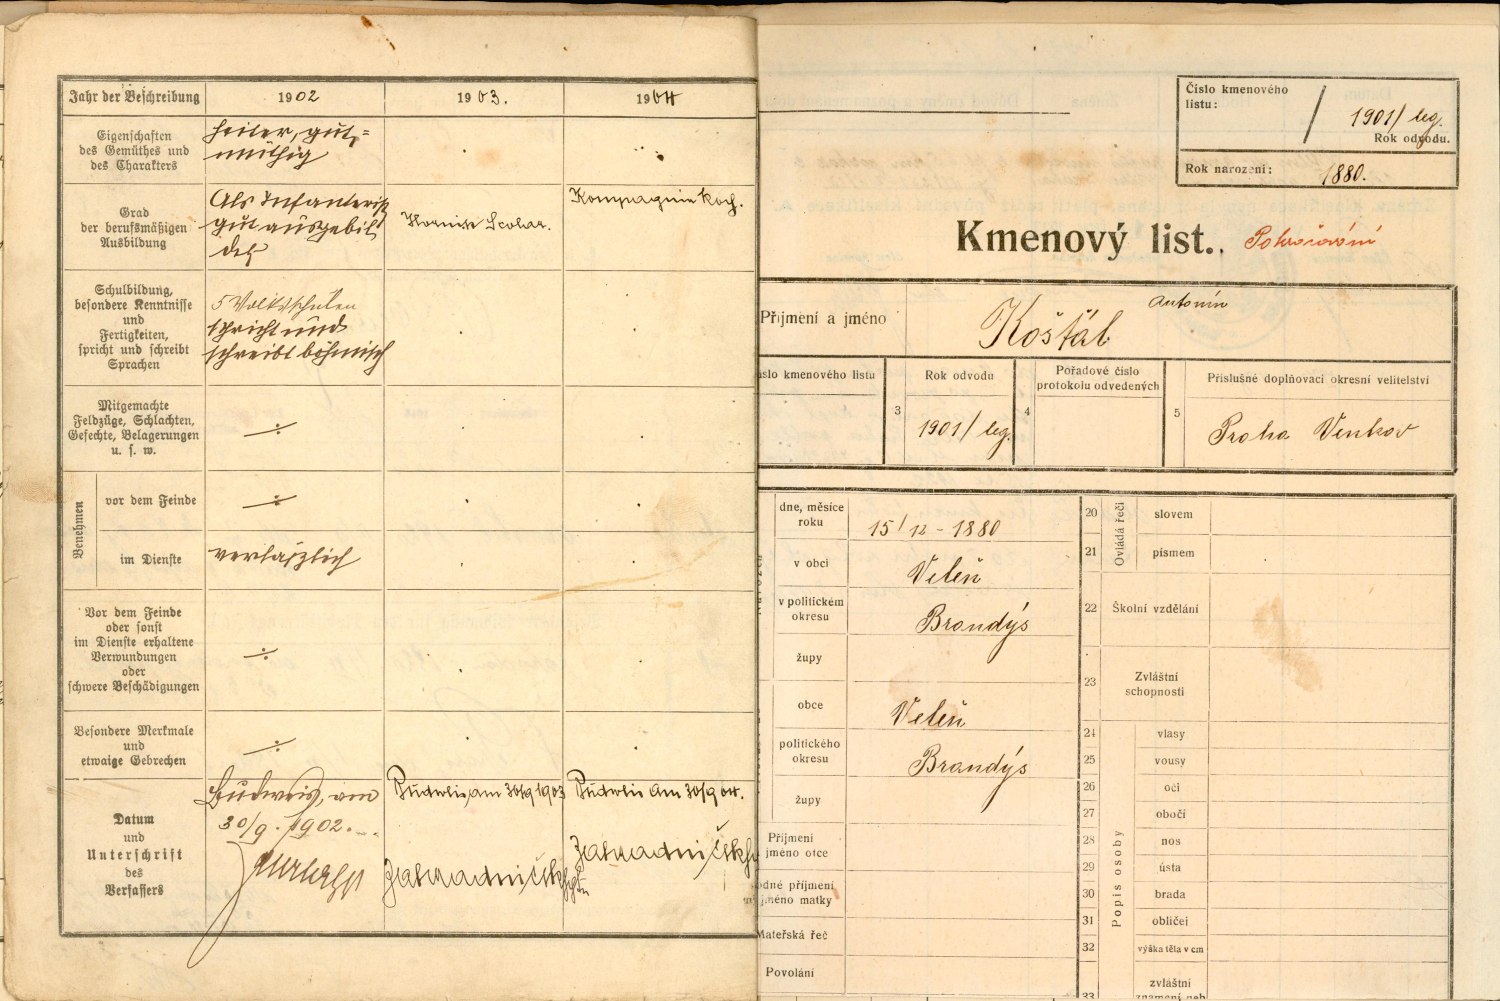 Jahr der Beschreibung 1902 1903. 1904
Eigenschaften
des Gemüthes und
des Charakters
heiter, gut=
müthig
Grad
der berufsmäßigen
Ausbildung
Als Infanterist
gut ausgebil
det
Hornist Scolar.
Kompagnie Koch.
Schulbildung,
besondere Kenntnisse
und
Fertigkeiten,
spricht und schreibt
Sprachen
5 Volksschulen
spricht und
schreibt böhmisch
Mitgemachte
Feldzüge, Schlachten,
Gefechte, Belagerungen
u. s. w.
Benehmen
vor dem Feinde
im Dienste
verläßlich
Vor dem Feinde
oder sonst
im Dienste erhaltene
Verwundungen
oder
schwere Beschädigungen
Besondere Merkmale
und
etwaige Gebrechen
Datum
und
Unterschrift
des
Verfassers
Budweis, am
30/9. 1902.
Budweis, am 30/9 1903
Budweis am 30/9 04.
Číslo kmenového
listu:
1901/ leg.
Rok odvodu.
Rok narození: 1880.
Kmenový list. Pokračování
Příjmení a jméno Košťál Antonín
kmenového listu
3 Rok odvodu
1901/ leg.
4 Pořadové číslo
protokolu odvedených
5 Příslušné doplňovací okresní velitelství
Praha Venkov
dne, měsíce
roku
15/12 - 1880
v obci Veleň
v politickém
okresu
Brandýs
župy
obce Veleň
politického
okresu
Brandýs
župy
Příjmení
jméno otce
příjmení
jméno matky
Mateřská řeč
Povolání
Ovládá řeči
20 slovem
21 písmem
22 Školní vzdělání
23 Zvláštní
schopnosti
Popis osoby
24 vlasy
25 vousy
26 oči
27 obočí
28 nos
29 ústa
30 brada
31 obličej
32 výška těla v cm
33 zvláštní
znamení neb